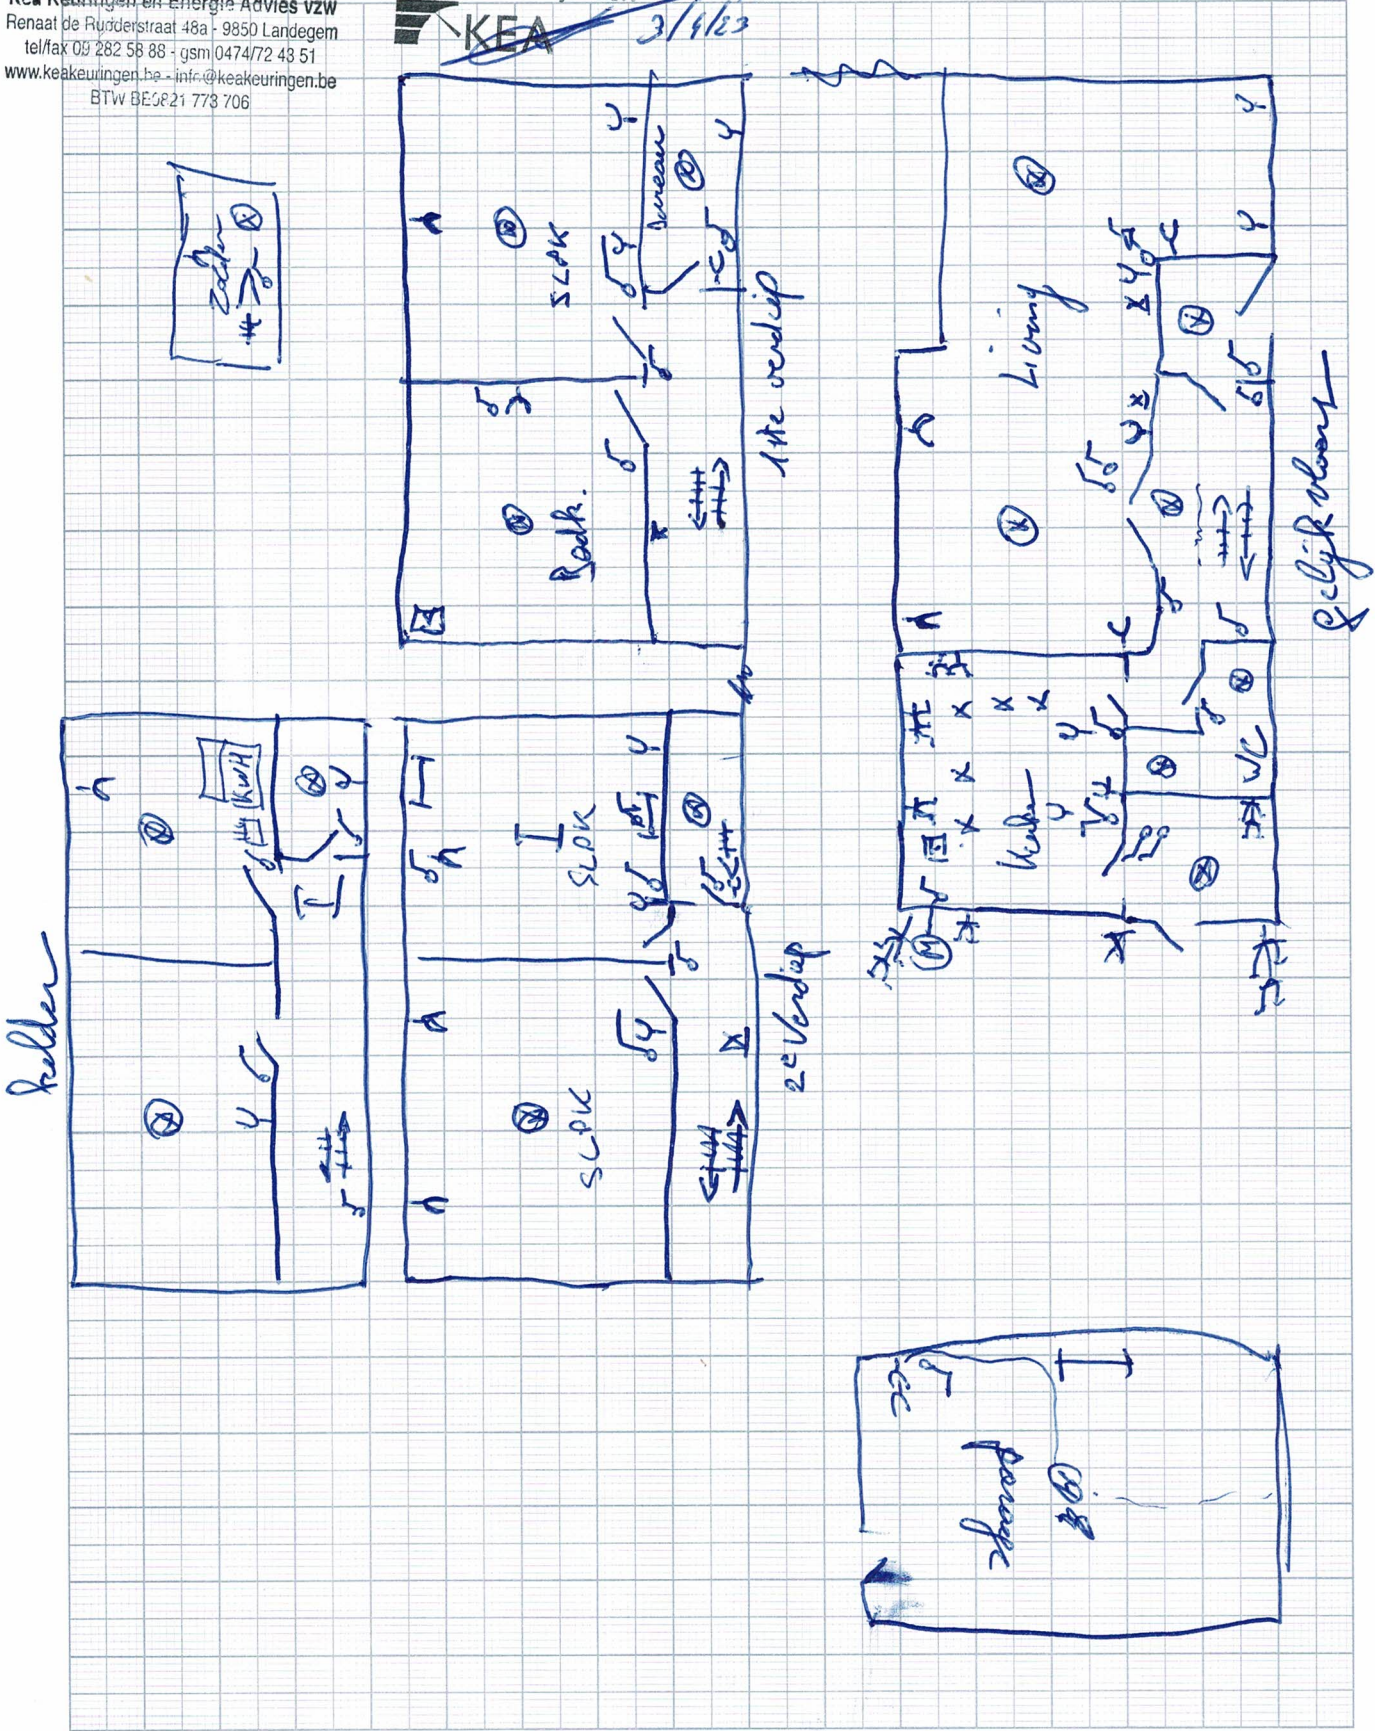 Kea Keuringen en Energie Advies vzw
Renaat de Rudderstraat 48a - 9850 Landegem
tel/fax 09 282 58 88 - gsm 0474/72 43 51
www.keakeuringen.be - info@keakeuringen.be
BTW BE0821 773 706
KEA
3/4/23
Zolder
SLPK
bureau
Badk.
1ste verdiep
Living
Keuken
WC
Gelijkvloers
Kelder
KWH
SLPK
SLPK
2e Verdiep
garage
M